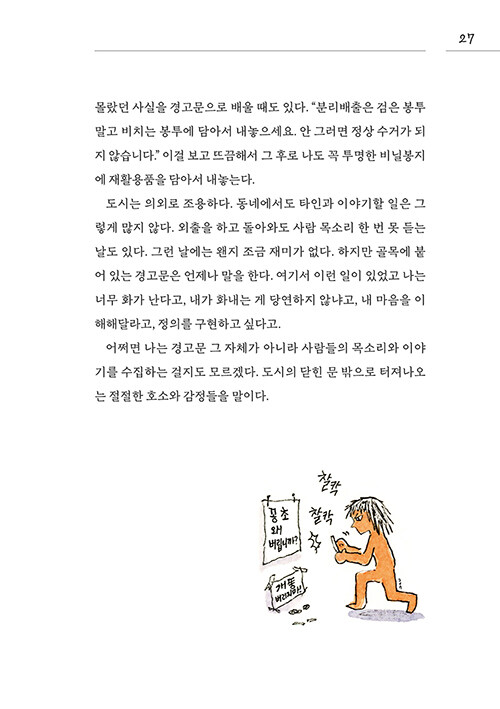 27
몰랐던 사실을 경고문으로 배울 때도 있다. “분리배출은 검은 봉투
말고 비치는 봉투에 담아서 내놓으세요. 안 그러면 정상 수거가 되
지 않습니다.” 이걸 보고 뜨끔해서 그 후로 나도 꼭 투명한 비닐봉지
에 재활용품을 담아서 내놓는다.
도시는 의외로 조용하다. 동네에서도 타인과 이야기할 일은 그
렇게 많지 않다. 외출을 하고 돌아와도 사람 목소리 한 번 못 듣는
날도 있다. 그런 날에는 왠지 조금 재미가 없다. 하지만 골목에 붙
어 있는 경고문은 언제나 말을 한다. 여기서 이런 일이 있었고 나는
너무 화가 난다고, 내가 화내는 게 당연하지 않냐고, 내 마음을 이
해해달라고, 정의를 구현하고 싶다고.
어쩌면 나는 경고문 그 자체가 아니라 사람들의 목소리와 이야
기를 수집하는 걸지도 모르겠다. 도시의 닫힌 문 밖으로 터져나오
는 절절한 호소와 감정들을 말이다.
찰칵
찰칵
꽁초
왜
버립니까?
개똥